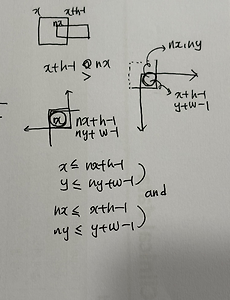 x x+h-1
nx
x+h-1 nx
>
nx,ny
x+h-1
y+w-1
x nx+h-1
ny+w-1
x ≤ nx+h-1
y ≤ ny+w-1
and
nx ≤ x+h-1
ny ≤ y+w-1